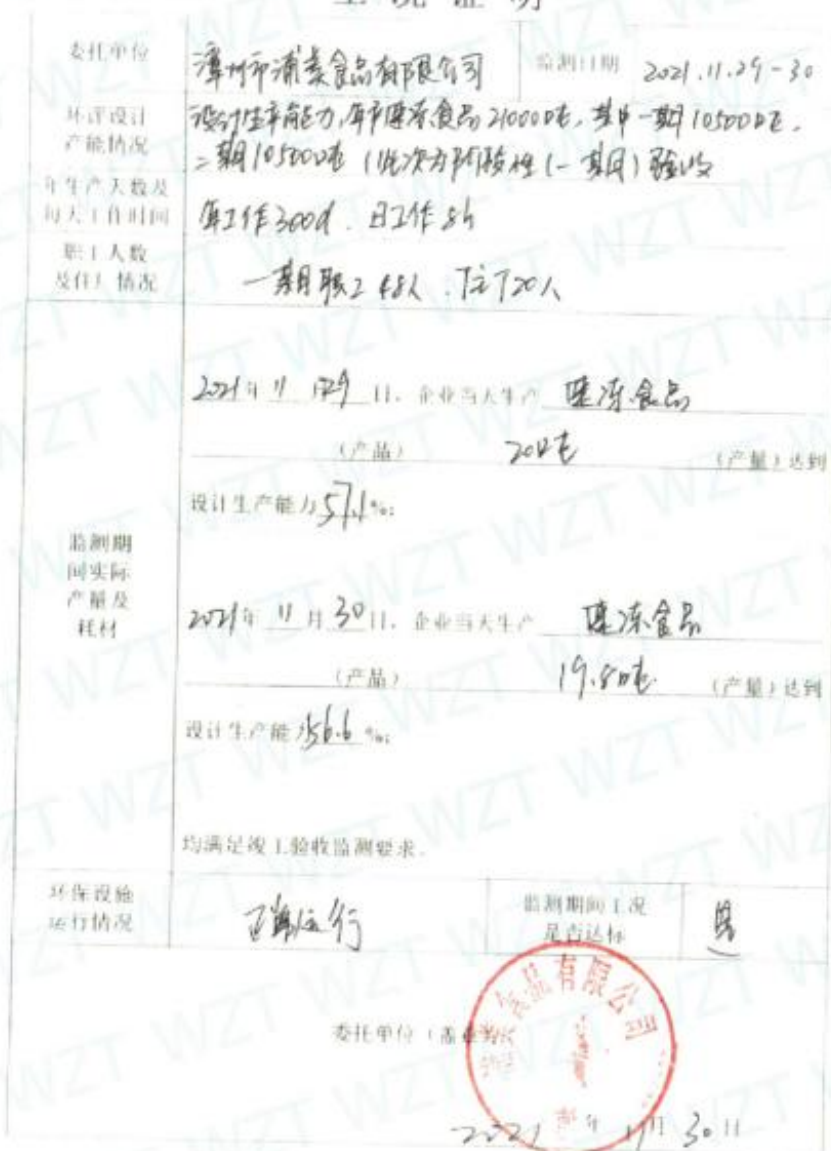 工况证明
委托单位 漳州市浦美食品有限公司 监测日期 2021.11.29-30
环评设计产能情况 设计生产能力,年产速冻食品21000吨,其中一期10500吨,
二期10500吨(此次为阶段性(一期)验收
年生产天数及每天工作时间 年工作300d.日工作8h
职工人数及住厂情况 一期职工48人.住厂20人
2021年11月29日,企业当天生产 速冻食品
(产品) 20吨 (产量)达到
设计生产能力57.1%;
监测期间实际产量及耗材
2021年11月30日,企业当天生产 速冻食品
(产品) 19.8吨 (产量)达到
设计生产能力56.6%;
均满足竣工验收监测要求.
环保设施运行情况 正常运行 监测期间工况是否达标 是
食品有限公司
委托单位(盖章):
2021年11月30日
WZT